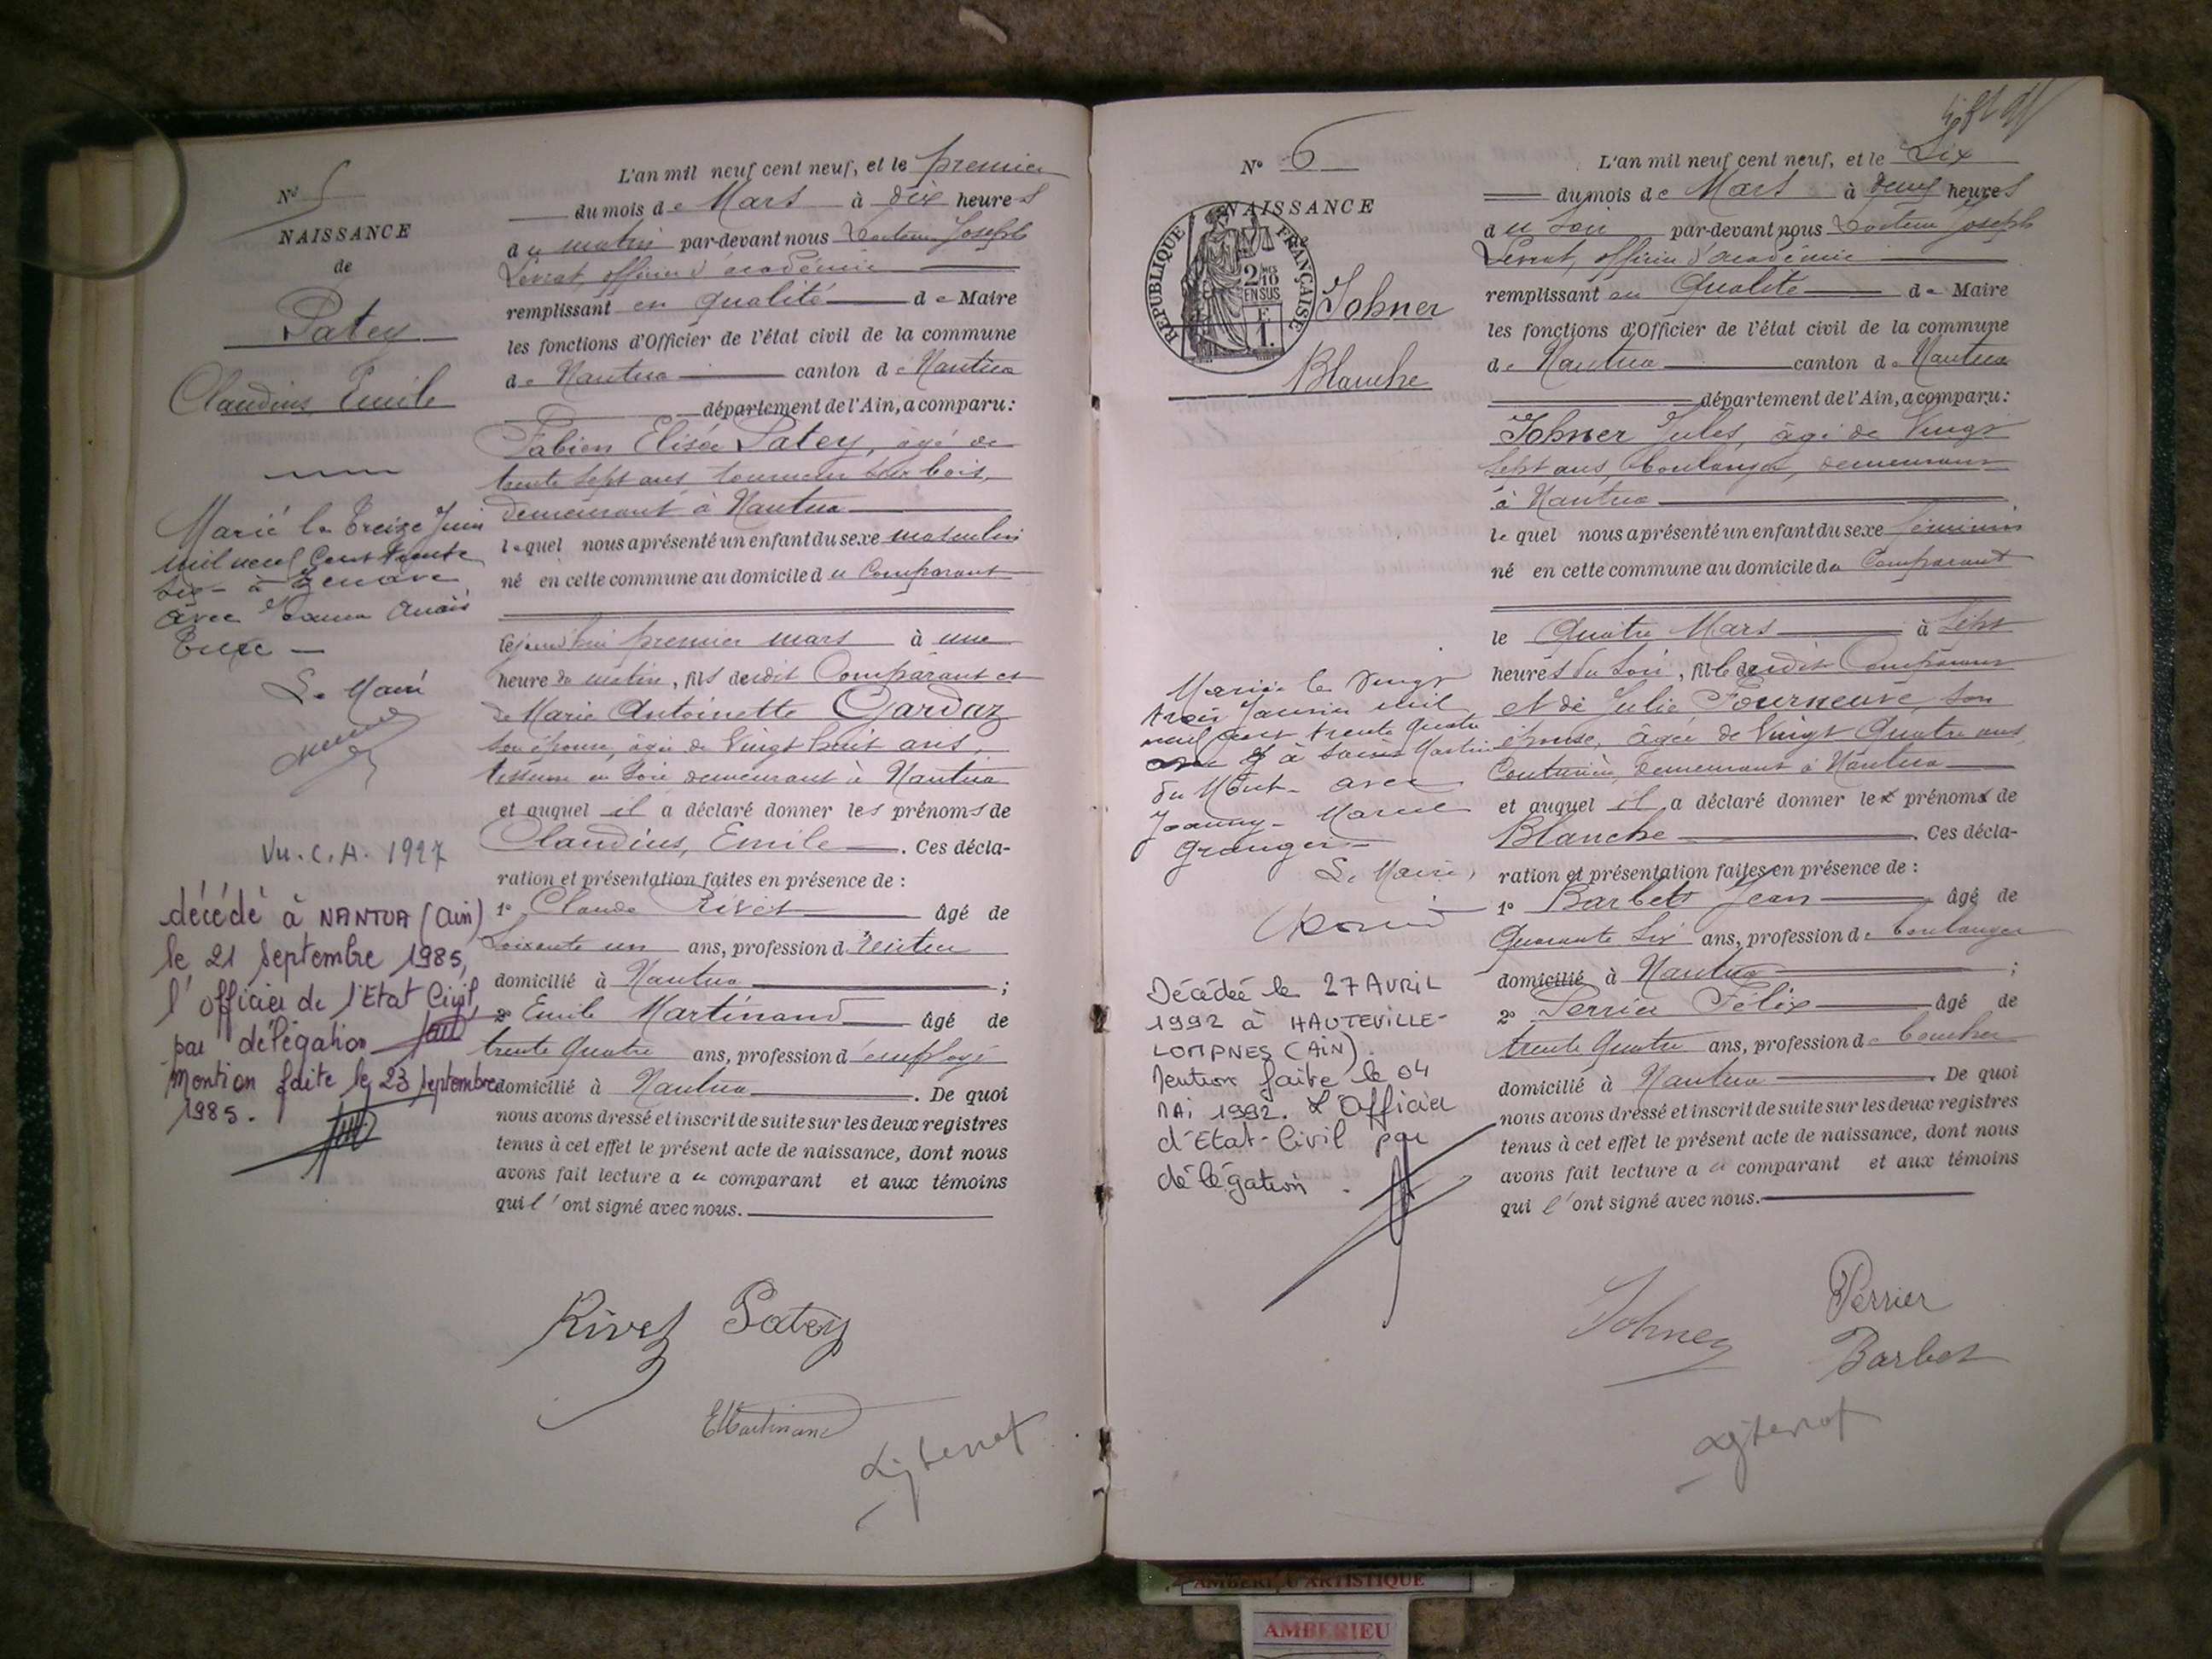 Nº 5
NAISSANCE
de
Patey
Claudius Emile
Marié le treize Juin
mil neuf cent trente
six à
avec Anaïs
Le Maire
Vu. C. A. 1927
décédé à NANTUA (Ain)
le 21 septembre 1985,
l'officier de l'Etat Civil,
par délégation
Mention faite le 23 septembre
1985.
L'an mil neuf cent neuf, et le premier
du mois de Mars à dix heures
du matin par-devant nous Docteur Joseph
Levrat, officier d'académie
remplissant en qualité de Maire
les fonctions d'Officier de l'état civil de la commune
de Nantua canton de Nantua
département de l'Ain, a comparu :
Fabien Elisée Patey, âgé de
trente sept ans tourneur sur bois,
demeurant à Nantua
lequel nous a présenté un enfant du sexe masculin
né en cette commune au domicile du Comparant
le jourd'hui premier mars à une
heure du matin, fils dudit Comparant et
de Marie Antoinette Gardaz
son épouse, âgée de Vingt huit ans,
tisseuse en soie demeurant à Nantua
et auquel il a déclaré donner les prénoms de
Claudius, Emile. Ces décla-
ration et présentation faites en présence de :
1º Claude Rivet âgé de
Soixante un ans, profession de rentier
domicilié à Nantua ;
2º Emile Martinand âgé de
trente quatre ans, profession d'employé
domicilié à Nantua. De quoi
nous avons dressé et inscrit de suite sur les deux registres
tenus à cet effet le présent acte de naissance, dont nous
avons fait lecture au comparant et aux témoins
qui l'ont signé avec nous.
Rivet Patey
E Martinand
Nº 6
NAISSANCE
RÉPUBLIQUE FRANÇAISE
2/10
EN SUS
F
1.
Johner
Blanche
Mariée le Vingt
trois Janvier mil
neuf cent trente quatre
à Saint Martin
du Mont avec
Joanny Marcel
Granger
Le Maire,
Décédée le 27 AVRIL
1992 à HAUTEVILLE-
LOMPNES (AIN).
Mention faite le 04
MAI 1992. L'Officier
d'Etat-Civil par
délégation.
L'an mil neuf cent neuf, et le Six
du mois de Mars à deux heures
du Soir par-devant nous Docteur Joseph
Levrat, officier d'académie
remplissant en Qualité de Maire
les fonctions d'Officier de l'état civil de la commune
de Nantua canton de Nantua
département de l'Ain, a comparu :
Johner Jules, âgé de Vingt
Sept ans, boulanger, demeurant
à Nantua
lequel nous a présenté un enfant du sexe féminin
né en cette commune au domicile du Comparant
le Quatre Mars à Sept
heures du Soir, fille dudit Comparant
et de Julie Fourneure, son
épouse, âgée de Vingt Quatre ans,
Couturière, demeurant à Nantua
et auquel il a déclaré donner le prénom de
Blanche. Ces décla-
ration et présentation faites en présence de :
1º Barbet Jean âgé de
Quarante Six ans, profession de boulanger
domicilié à Nantua ;
2º Perrier Félix âgé de
trente Quatre ans, profession de boucher
domicilié à Nantua. De quoi
nous avons dressé et inscrit de suite sur les deux registres
tenus à cet effet le présent acte de naissance, dont nous
avons fait lecture au comparant et aux témoins
qui l'ont signé avec nous.
Johner
Perrier
Barbet
AMBERIEU ARTISTIQUE
AMBERIEU